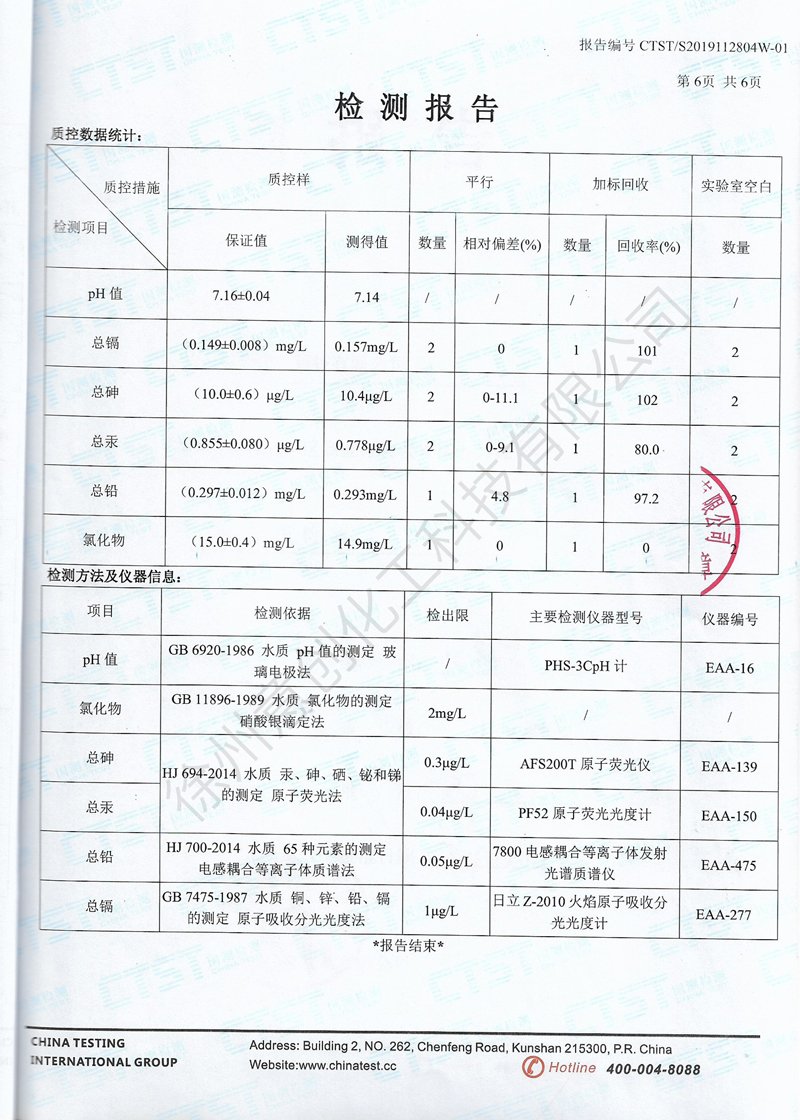 报告编号 CTST/S2019112804W-01
第 6页 共 6页
检 测 报 告
质控数据统计：
质控措施 质控样 平行 加标回收 实验室空白
检测项目 保证值 测得值 数量 相对偏差(%) 数量 回收率(%) 数量
pH 值 7.16±0.04 7.14 / / / / /
总镉 （0.149±0.008）mg/L 0.157mg/L 2 0 1 101 2
总砷 （10.0±0.6）μg/L 10.4μg/L 2 0-11.1 1 102 2
总汞 （0.855±0.080）μg/L 0.778μg/L 2 0-9.1 1 80.0 2
总铅 （0.297±0.012）mg/L 0.293mg/L 1 4.8 1 97.2 2
氯化物 （15.0±0.4）mg/L 14.9mg/L 1 0 1 0 2
限公司
检测方法及仪器信息：
项目 检测依据 检出限 主要检测仪器型号 仪器编号
pH 值 GB 6920-1986 水质 pH 值的测定 玻
璃电极法 / PHS-3CpH 计 EAA-16
氯化物 GB 11896-1989 水质 氯化物的测定
硝酸银滴定法 2mg/L / /
总砷 0.3μg/L AFS200T 原子荧光仪 EAA-139
HJ 694-2014 水质 汞、砷、硒、铋和锑
的测定 原子荧光法
总汞 0.04μg/L PF52 原子荧光光度计 EAA-150
总铅 HJ 700-2014 水质 65 种元素的测定
电感耦合等离子体质谱法 0.05μg/L 7800 电感耦合等离子体发射
光谱质谱仪 EAA-475
总镉 GB 7475-1987 水质 铜、锌、铅、镉
的测定 原子吸收分光光度法 1μg/L 日立 Z-2010 火焰原子吸收分
光光度计 EAA-277
*报告结束*
CHINA TESTING
INTERNATIONAL GROUP
Address: Building 2, NO. 262, Chenfeng Road, Kunshan 215300, P.R. China
Website:www.chinatest.cc
Hotline 400-004-8088